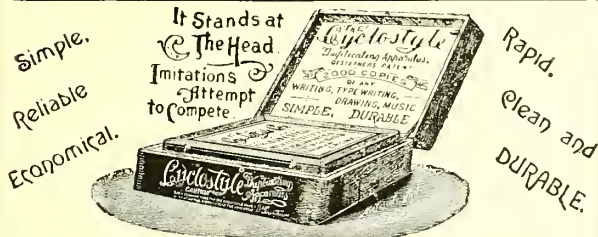 Simple,
Reliable
Economical.
It Stands at
The Head.
Imitations
Attempt
to Compete.
"THE"
Cyclostyle
Duplicating Apparatus.
GESTETNERS PATENT
2000 COPIES
OF ANY
WRITING, TYPEWRITING,
DRAWING, MUSIC
SIMPLE, DURABLE
Cyclostyle Duplicating
Apparatus
CAUTION
Rapid.
Clean and
DURABLE.